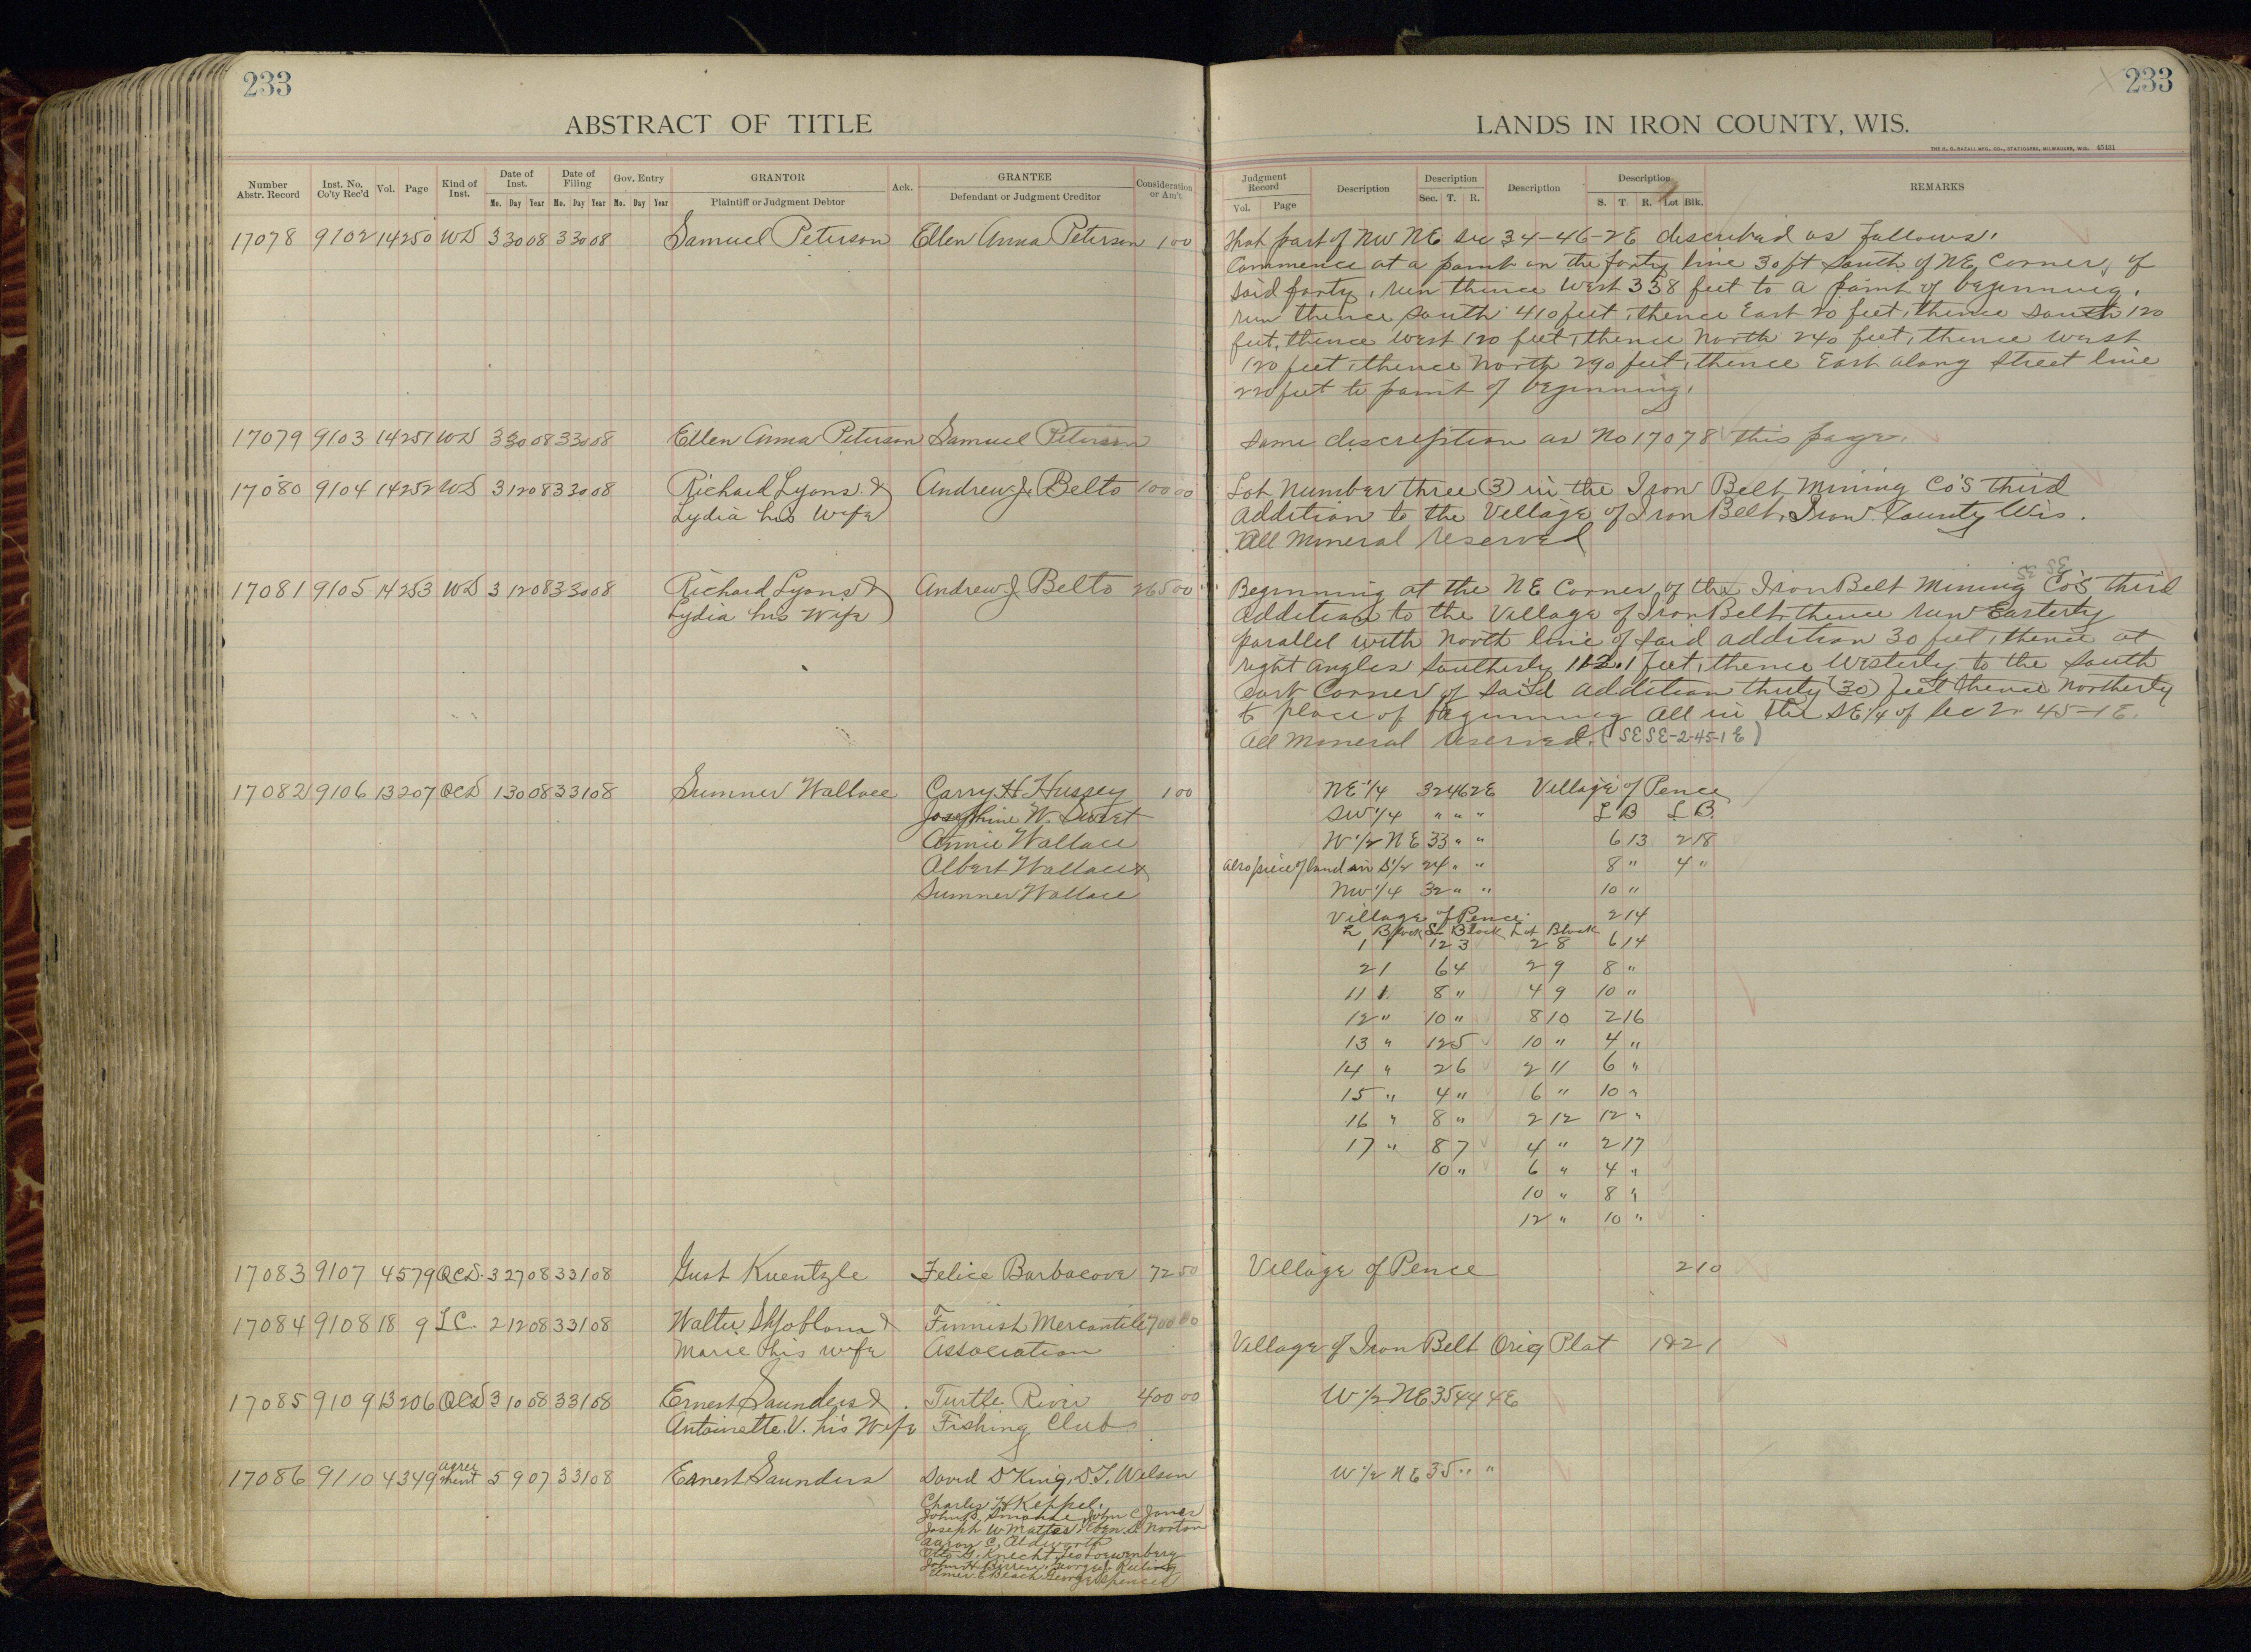 233
ABSTRACT OF TITLE
Number Abstr. Record
Inst. No. Co'ty Rec'd
Vol.
Page
Kind of Inst.
Date of Inst.
Mo. Day Year
Date of Filing
Mo. Day Year
Gov. Entry
Mo. Day Year
GRANTOR
Plaintiff or Judgment Debtor
Ack.
GRANTEE
Defendant or Judgment Creditor
Consideration or Am't
17078 9102 14 250 WD 3 30 08 3 30 08 Samuel Peterson Ellen Anna Peterson 1 00
17079 9103 14 251 WD 3 30 08 3 30 08 Ellen Anna Peterson Samuel Peterson
17080 9104 14 252 WD 3 12 08 3 30 08 Richard Lyons & Andrew J. Belto 100 00
Lydia his Wife
17081 9105 14 253 WD 3 12 08 3 30 08 Richard Lyons & Andrew J. Belto 265 00
Lydia his Wife
17082 9106 13 207 QCD 1 30 08 3 31 08 Sumner Wallace Carry H Hussey 1 00
Josephine W. Sweet
Annie Wallace
Albert Wallace &
Sumner Wallace
17083 9107 4 579 QCD. 3 27 08 3 31 08 Gust Kuentzle Felice Barbacove 72 50
17084 9108 18 9 LC. 2 12 08 3 31 08 Walter Skjoblom & Finnish Mercantile 700 00
Marie his wife Association
17085 9109 13 206 QCD 3 10 08 3 31 08 Ernest Saunders & Turtle River 400 00
Antoinette. V. his Wife Fishing Club
17086 9110 4 349 agree ment 5 9 07 3 31 08 Ernest Saunders David D King, D.T. Wilson
Charles H Keppel,
John C Jones
Joseph W Mattes Eben S. Norton
Aaron C. Aldworth
Otto G. Knecht
George Spencer
233
LANDS IN IRON COUNTY, WIS.
THE H. G. RAZALL MFG. CO., STATIONERS, MILWAUKEE, WIS. 45431
Judgment Record
Vol. Page
Description
Description
Sec. T. R.
Description
Description
S. T. R. Lot Blk.
REMARKS
That part of NW NE sec 34-46-2E described as follows.
Commence at a point on the forty line 30 ft South of NE Corner, of
said forty, run thence West 338 feet to a point of beginning,
run thence South 410 feet, thence East 20 feet, thence South 120
feet, thence West 120 feet, thence North 240 feet, thence west
120 feet, thence North 290 feet, thence East along Street line
220 feet to point of beginning.
Same description as No 17078 this page.
Lot Number three (3) in the Iron Belt Mining Co's third
Addition to the Village of Iron Belt, Iron County Wis.
All Mineral reserved
Beginning at the NE Corner of the Iron Belt Mining Co's third
Addition to the Village of Iron Belt, thence run Easterly
parallel with North line of said addition 30 feet, thence at
right angles Southerly 112.1 feet, thence Westerly to the South
east Corner of said addition thirty (30) feet thence Northerly
to place of beginning All in the SE 1/4 of Sec 2- 45-1E.
All Mineral reserved. (SESE-2-45-1E)
NE 1/4 32 46 2E Village of Pence
SW 1/4 " " " L B L B.
W 1/2 NE 33 " " 6 13 2 18
also piece of land in S 1/2 24 " " 8 " 4 "
NW 1/4 32 " " 10 "
Village of Pence. 2 14
L Block L Block Lot Block
1 1 12 3 2 8 6 14
2 1 6 4 2 9 8 "
11 1 8 " 4 9 10 "
12 " 10 " 8 10 2 16
13 " 12 5 10 " 4 "
14 " 2 6 2 11 6 "
15 " 4 " 6 " 10 "
16 " 8 " 2 12 12 "
17 " 8 7 4 " 2 17
10 " 6 " 4 "
10 " 8 "
12 " 10 "
Village of Pence 2 10
Village of Iron Belt Orig Plat 18 21
W 1/2 NE 35 44 4E
W 1/2 NE 35 " "